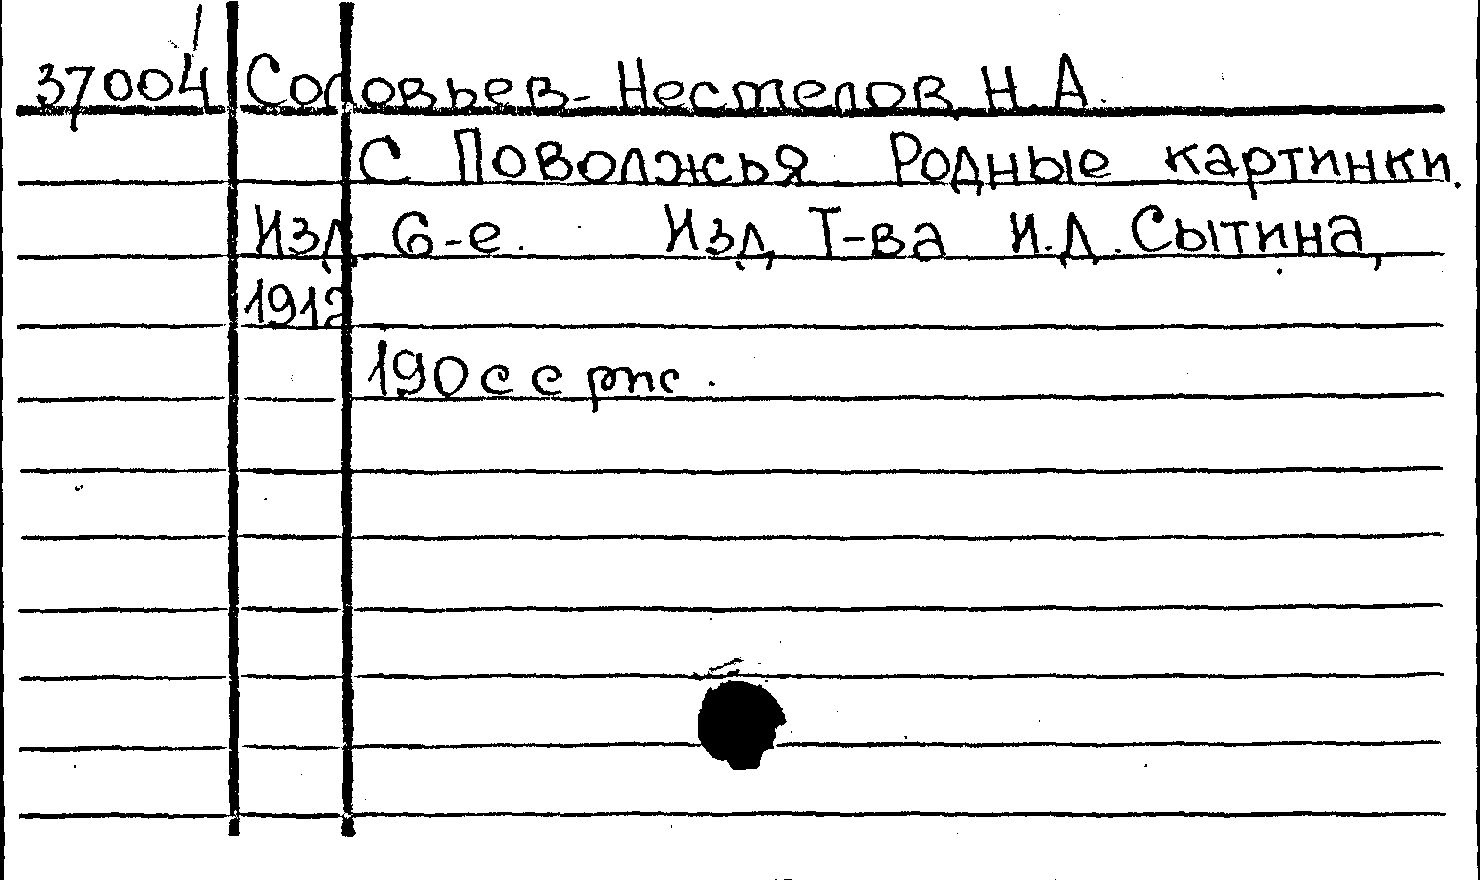 37004 Соловьев-Нестелов Н.А.
С Поволжья Родные картинки.
Изд 6-е. Изд Т-ва И.Д.Сытина,
1912
190 с с рис.